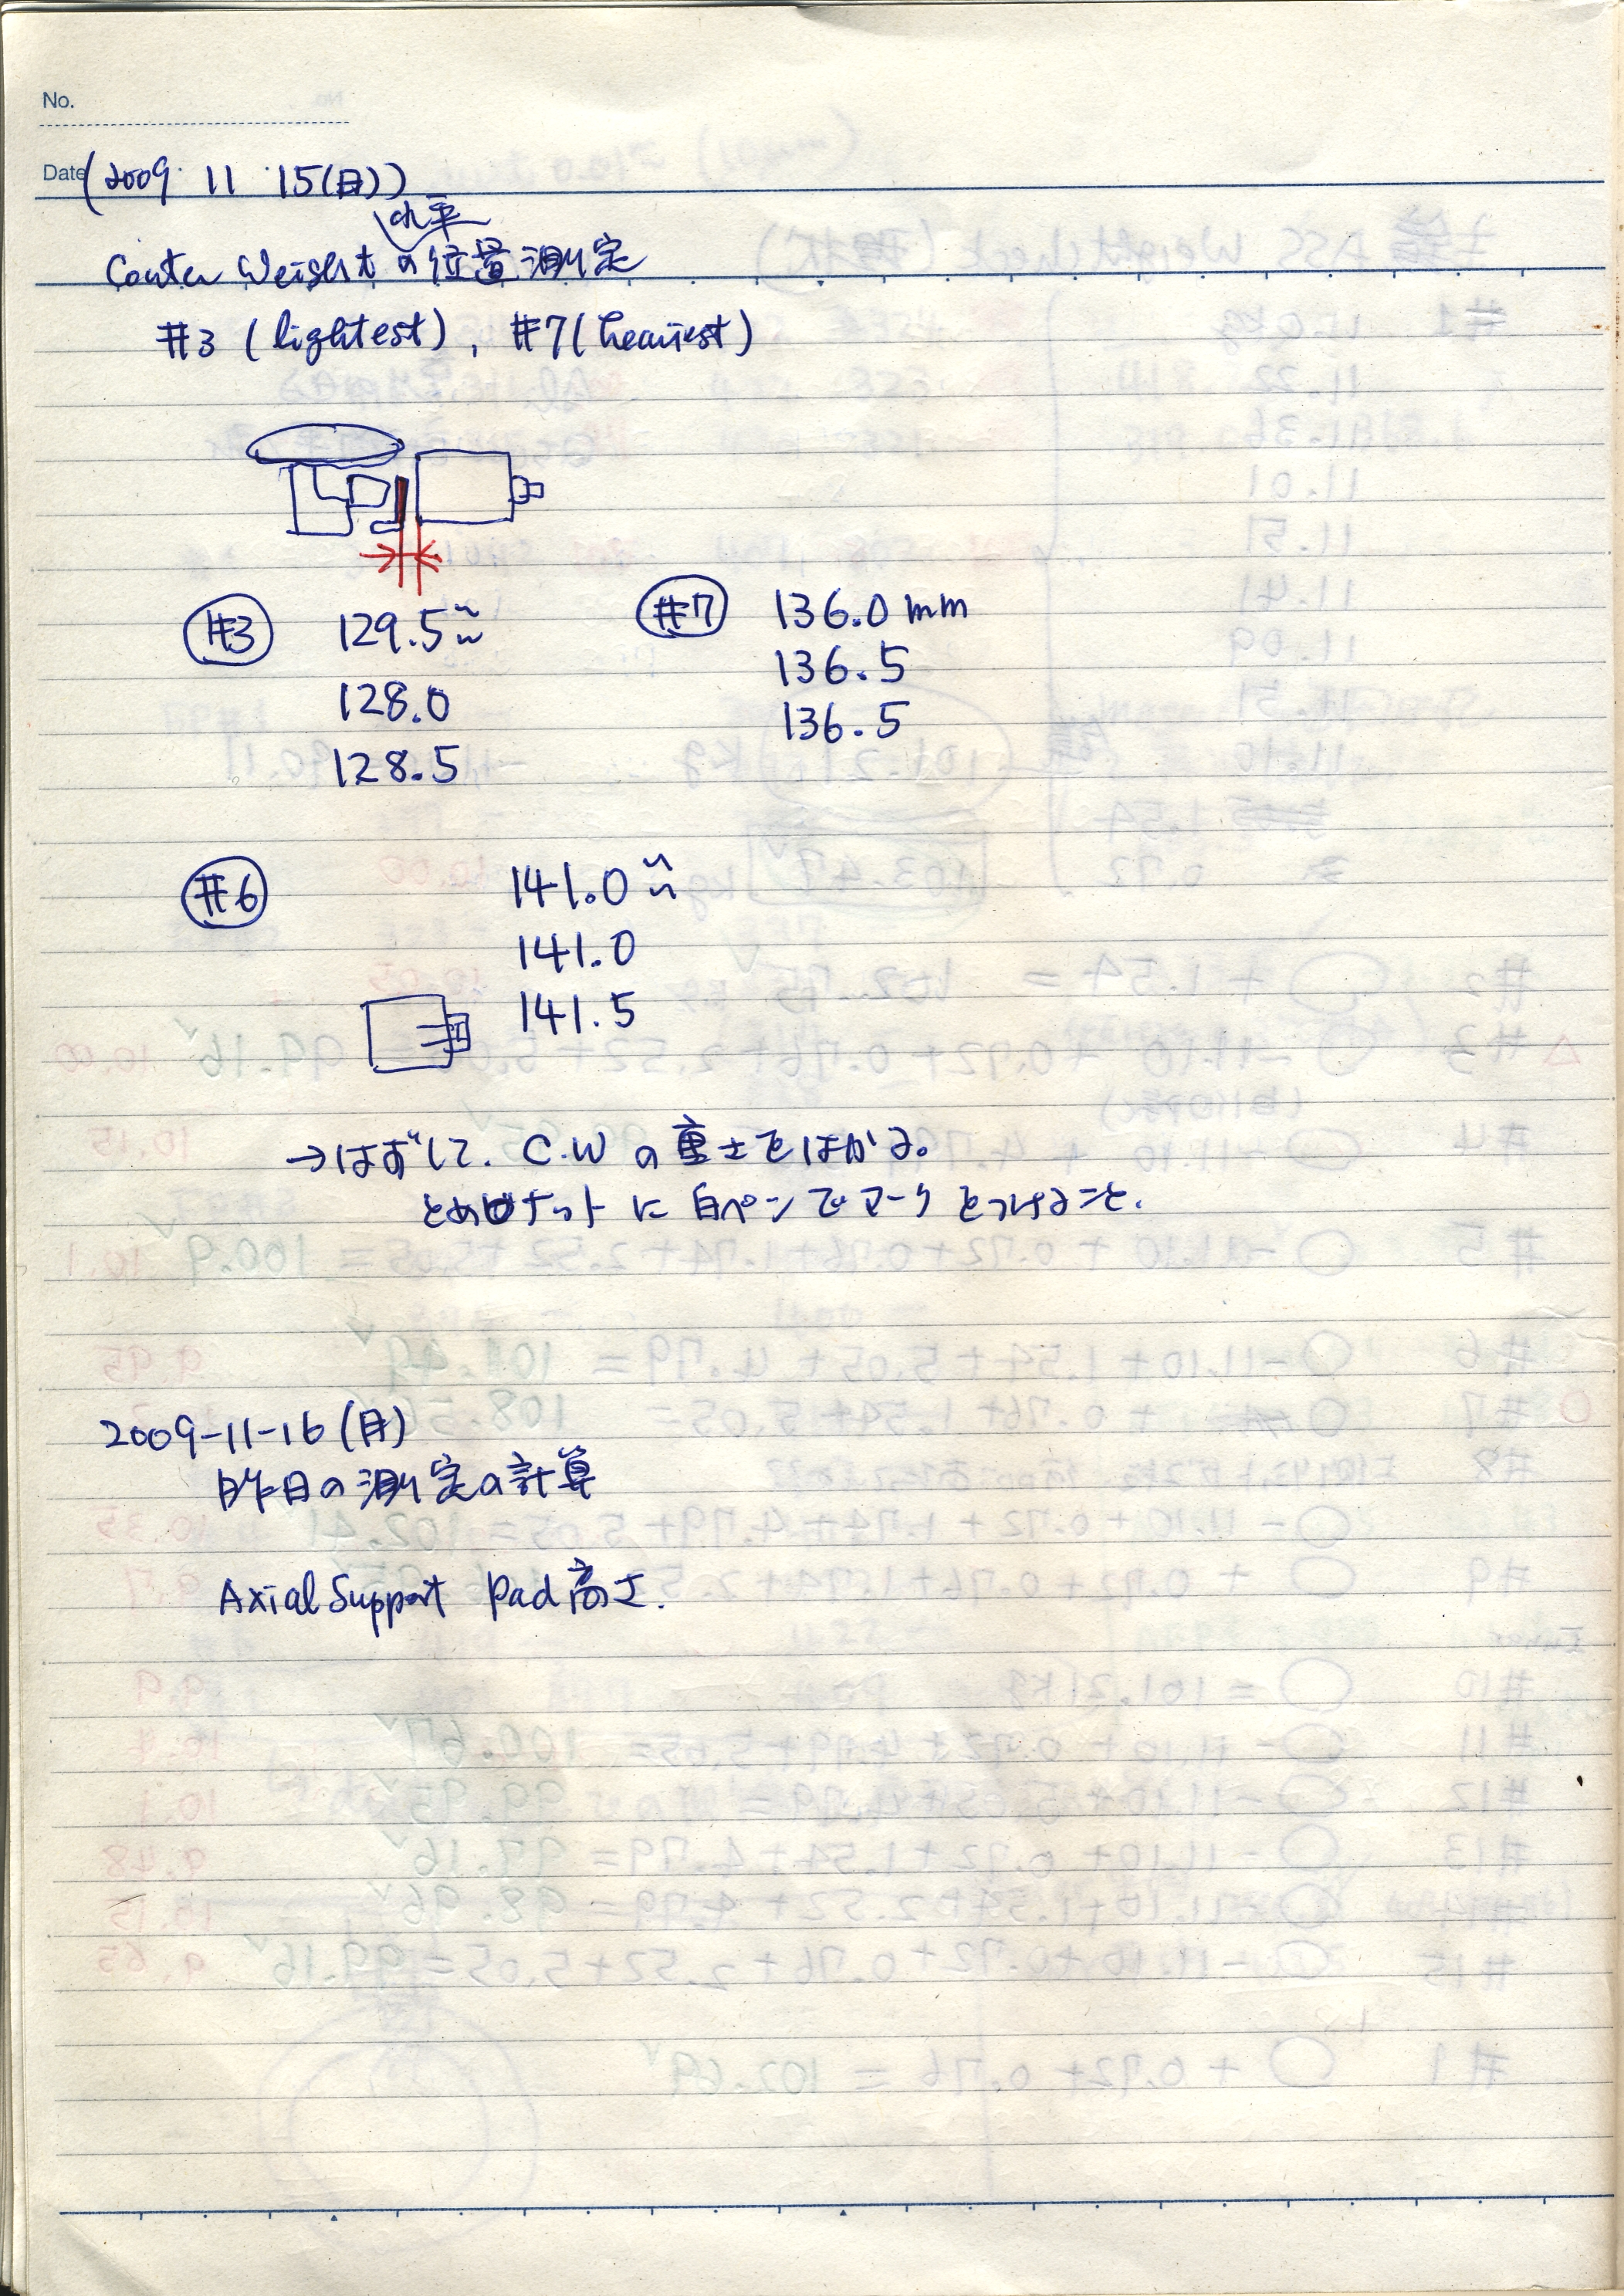 No.
Date (2009 11 15(日))
水平
Counter Weight の位置測定
#3 (lightest), #7 (heaviest)
#3 129.5mm #7 136.0mm
128.0 136.5
128.5 136.5
#6 141.0mm
141.0
141.5
→はずして、C.W の重さをはかる。
とめナットに白ペンでマークをつけること.
2009-11-16(月)
昨日の測定の計算
Axial Support Pad 高さ.